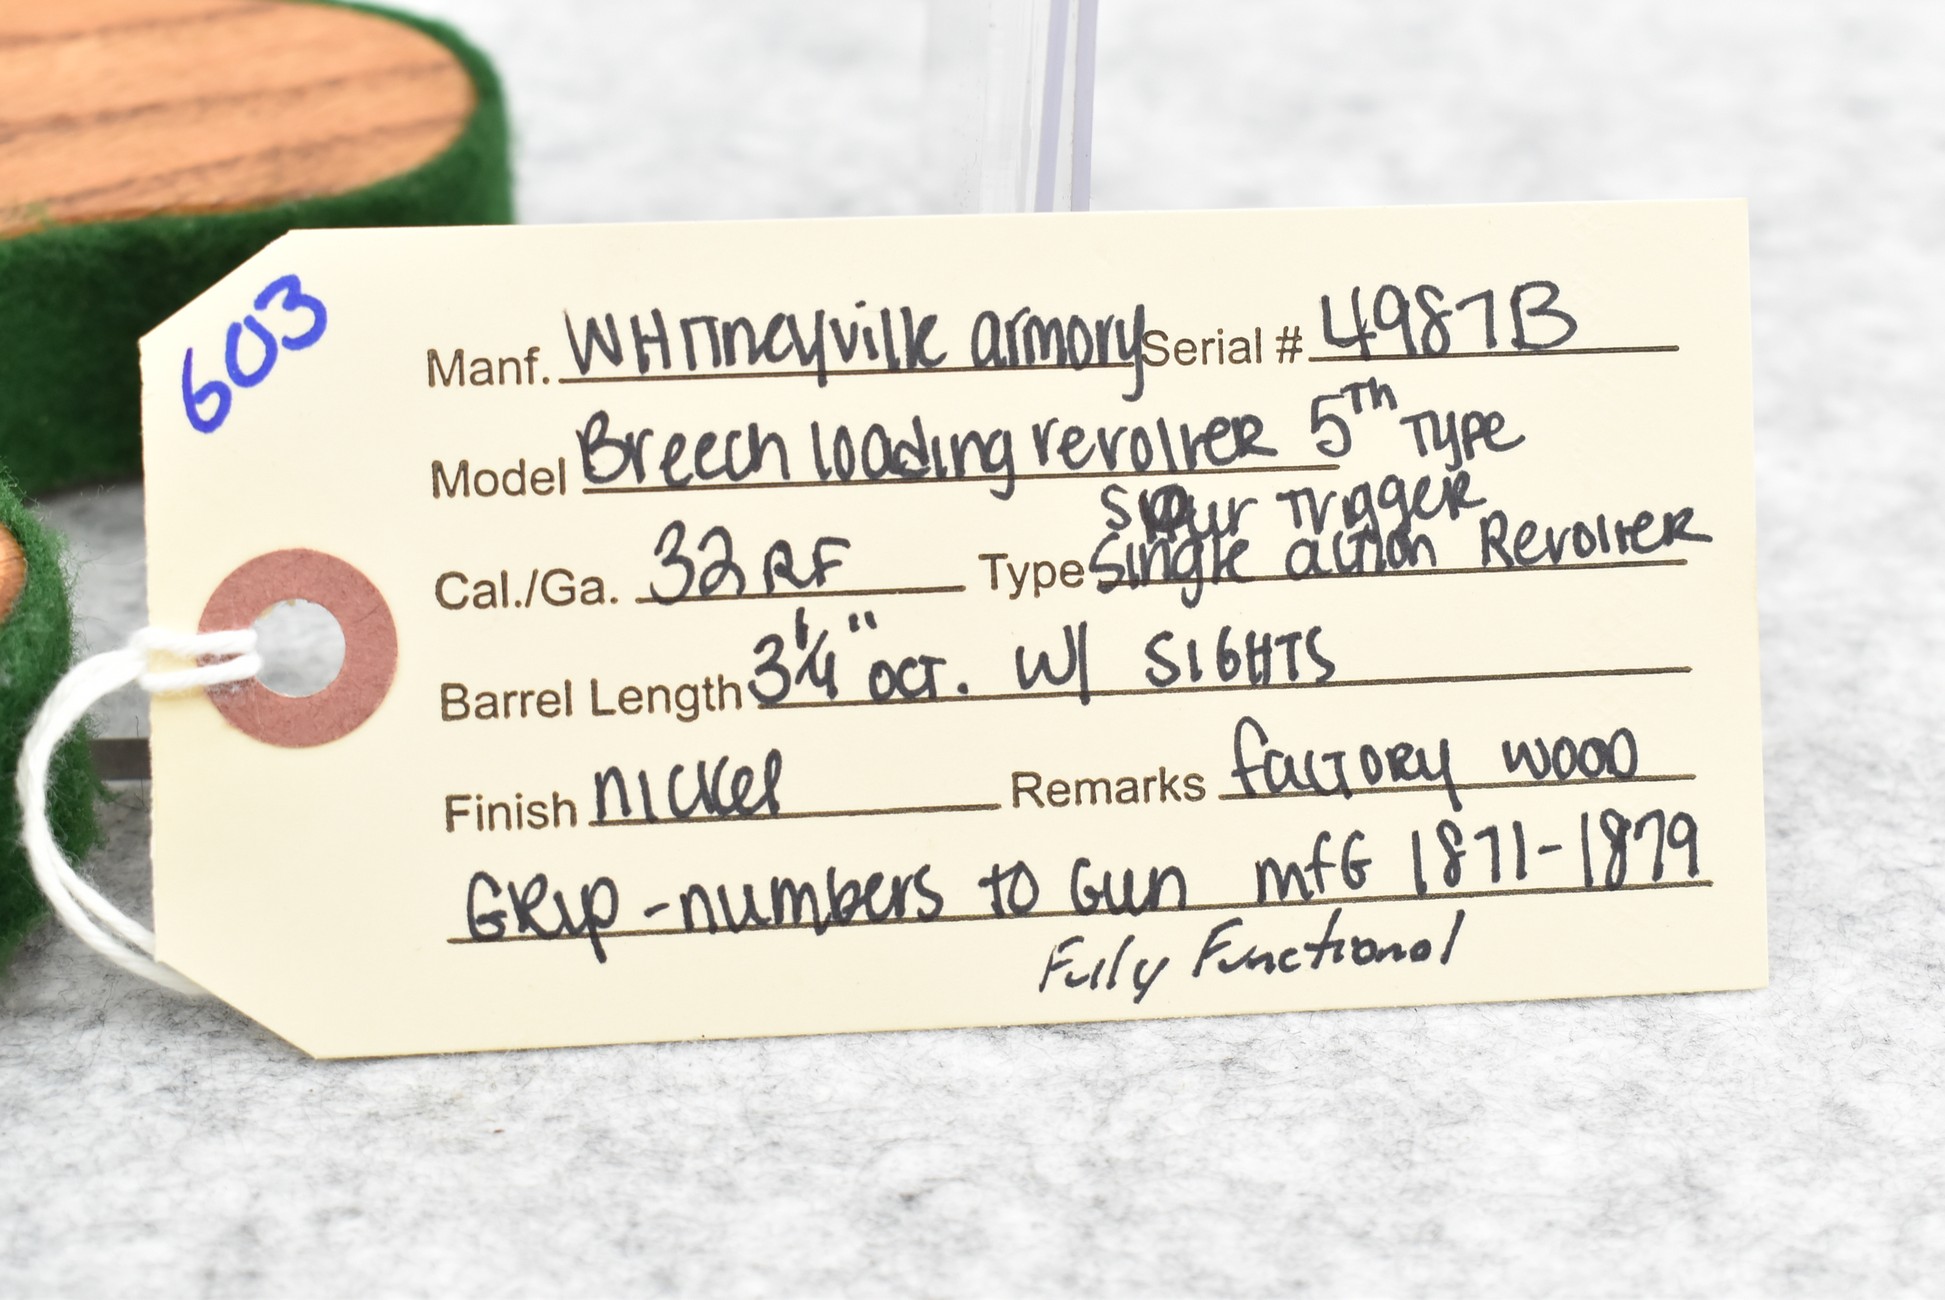 603
Manf. WHITneyville armory Serial # 4987B
Model Breech loading revolver 5Th Type
Spur Trigger
Cal./Ga. 32 RF Type Single action Revolver
Barrel Length 3 1/4" OCT. W/ SIGHTS
Finish nickel Remarks factory wood
Grip - numbers to Gun mfG 1871-1879
Fully Functional